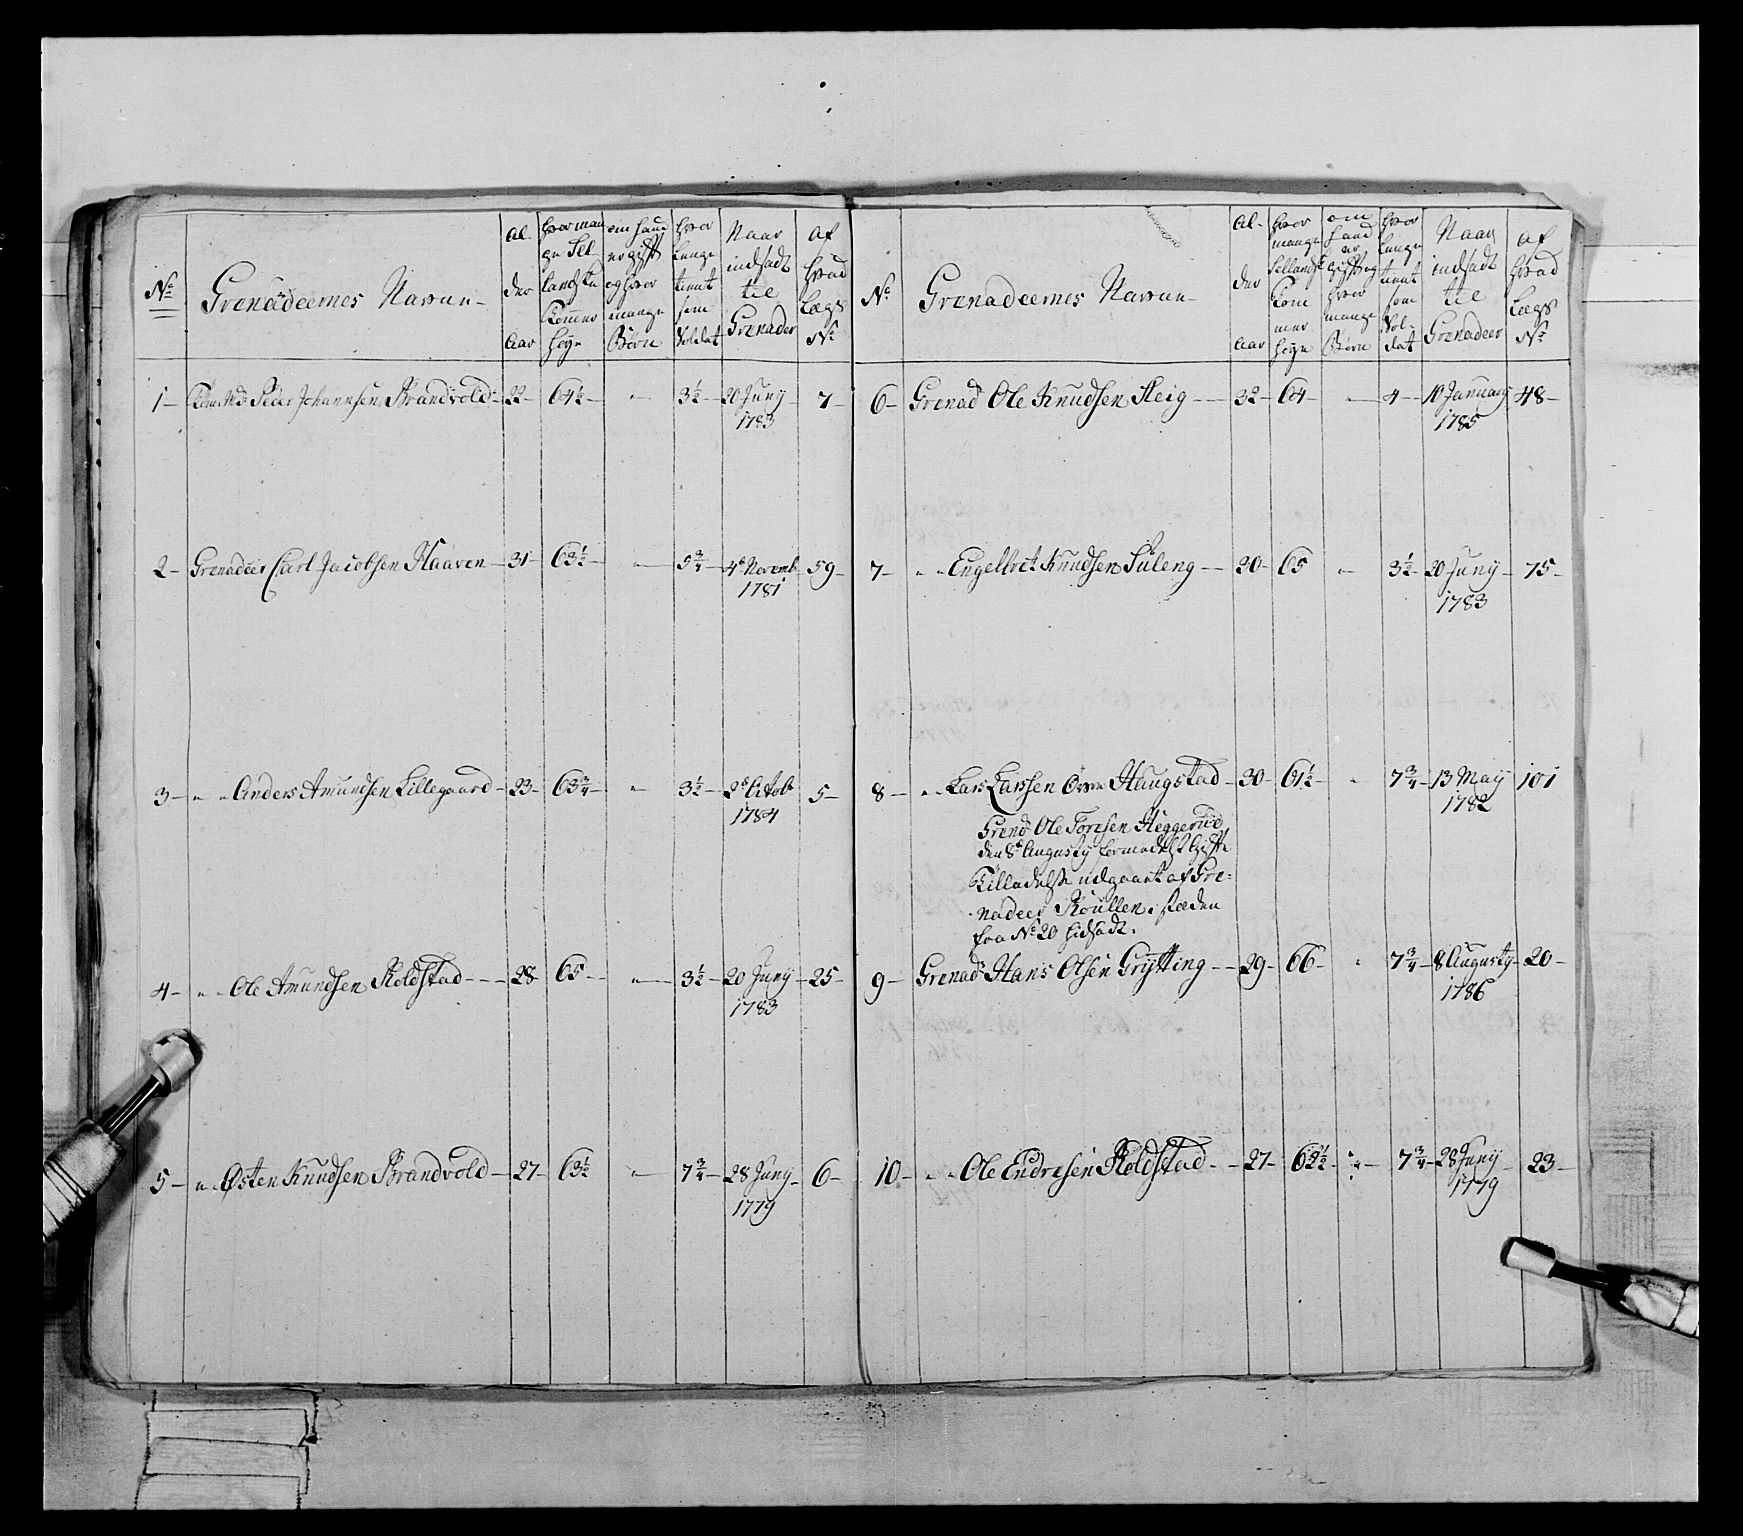 No
Grenadeernes Navne
Al-
der
Aar
hvor man
ge Sel
landske
Tommer
høye
om hand
er gift
og hvor
mange
Børn
hvor
lenge
tient
som
Soldat
Naar
indsadt
til
Grenader
Af
hvad
Lægs
No
1 Peder Johannsen Strandvold 22 64½ " 3½ 20 Juny 7
1783
2 Grenadeer Carl Jacobsen Haaven 31 63½ " 5¾ 4d Novemb 59
1781
3 " " Anders Amundsen Lillegaard 23 63¾ " 3½ 2d Octobr 5
1784
4 " " Ole Amundsen Koldstad 28 65 " 3½ 20 Juny 25
1783
5 " " Østen Knudsen Strandvold 27 63½ " 7¾ 28 Juny 6
1779
No
Grenadeernes Navne
Al-
der
Aar
hvor
mange
Sellandsk
Tom
mer
høye
om
hand
er
gift og
hvor
mange
Børn
hvor
lenge
tient
som
Sol-
dat
Naar
indsadt
til
Grenadeer
af
hvad
Lægs
No
6 Grenad Ole Knudsen Steig 32 64 " 4 10 January 48
1785
7 " " Engelbret Knudsen Suleng 20 65 " 3½ 20 Juny 75
1783
8 " " Lars Larsen Øvre Haugstad 30 61½ " 7¾ 13 May 101
1782
Grend Ole Toresen Heggerud
den 8d Augusty formedelst Gifte
Tilladelse udgaaet af Gre-
nadeer Roullen, i stæden
fra No 20 hidsadt.
9 Grenad Hans Olsen Grytting 29 66 " 7¾ 8 Augusty 20
1786
10 " " Ole Endresen Koldstad 27 62½ " 7¾ 28 Juny 23
1779